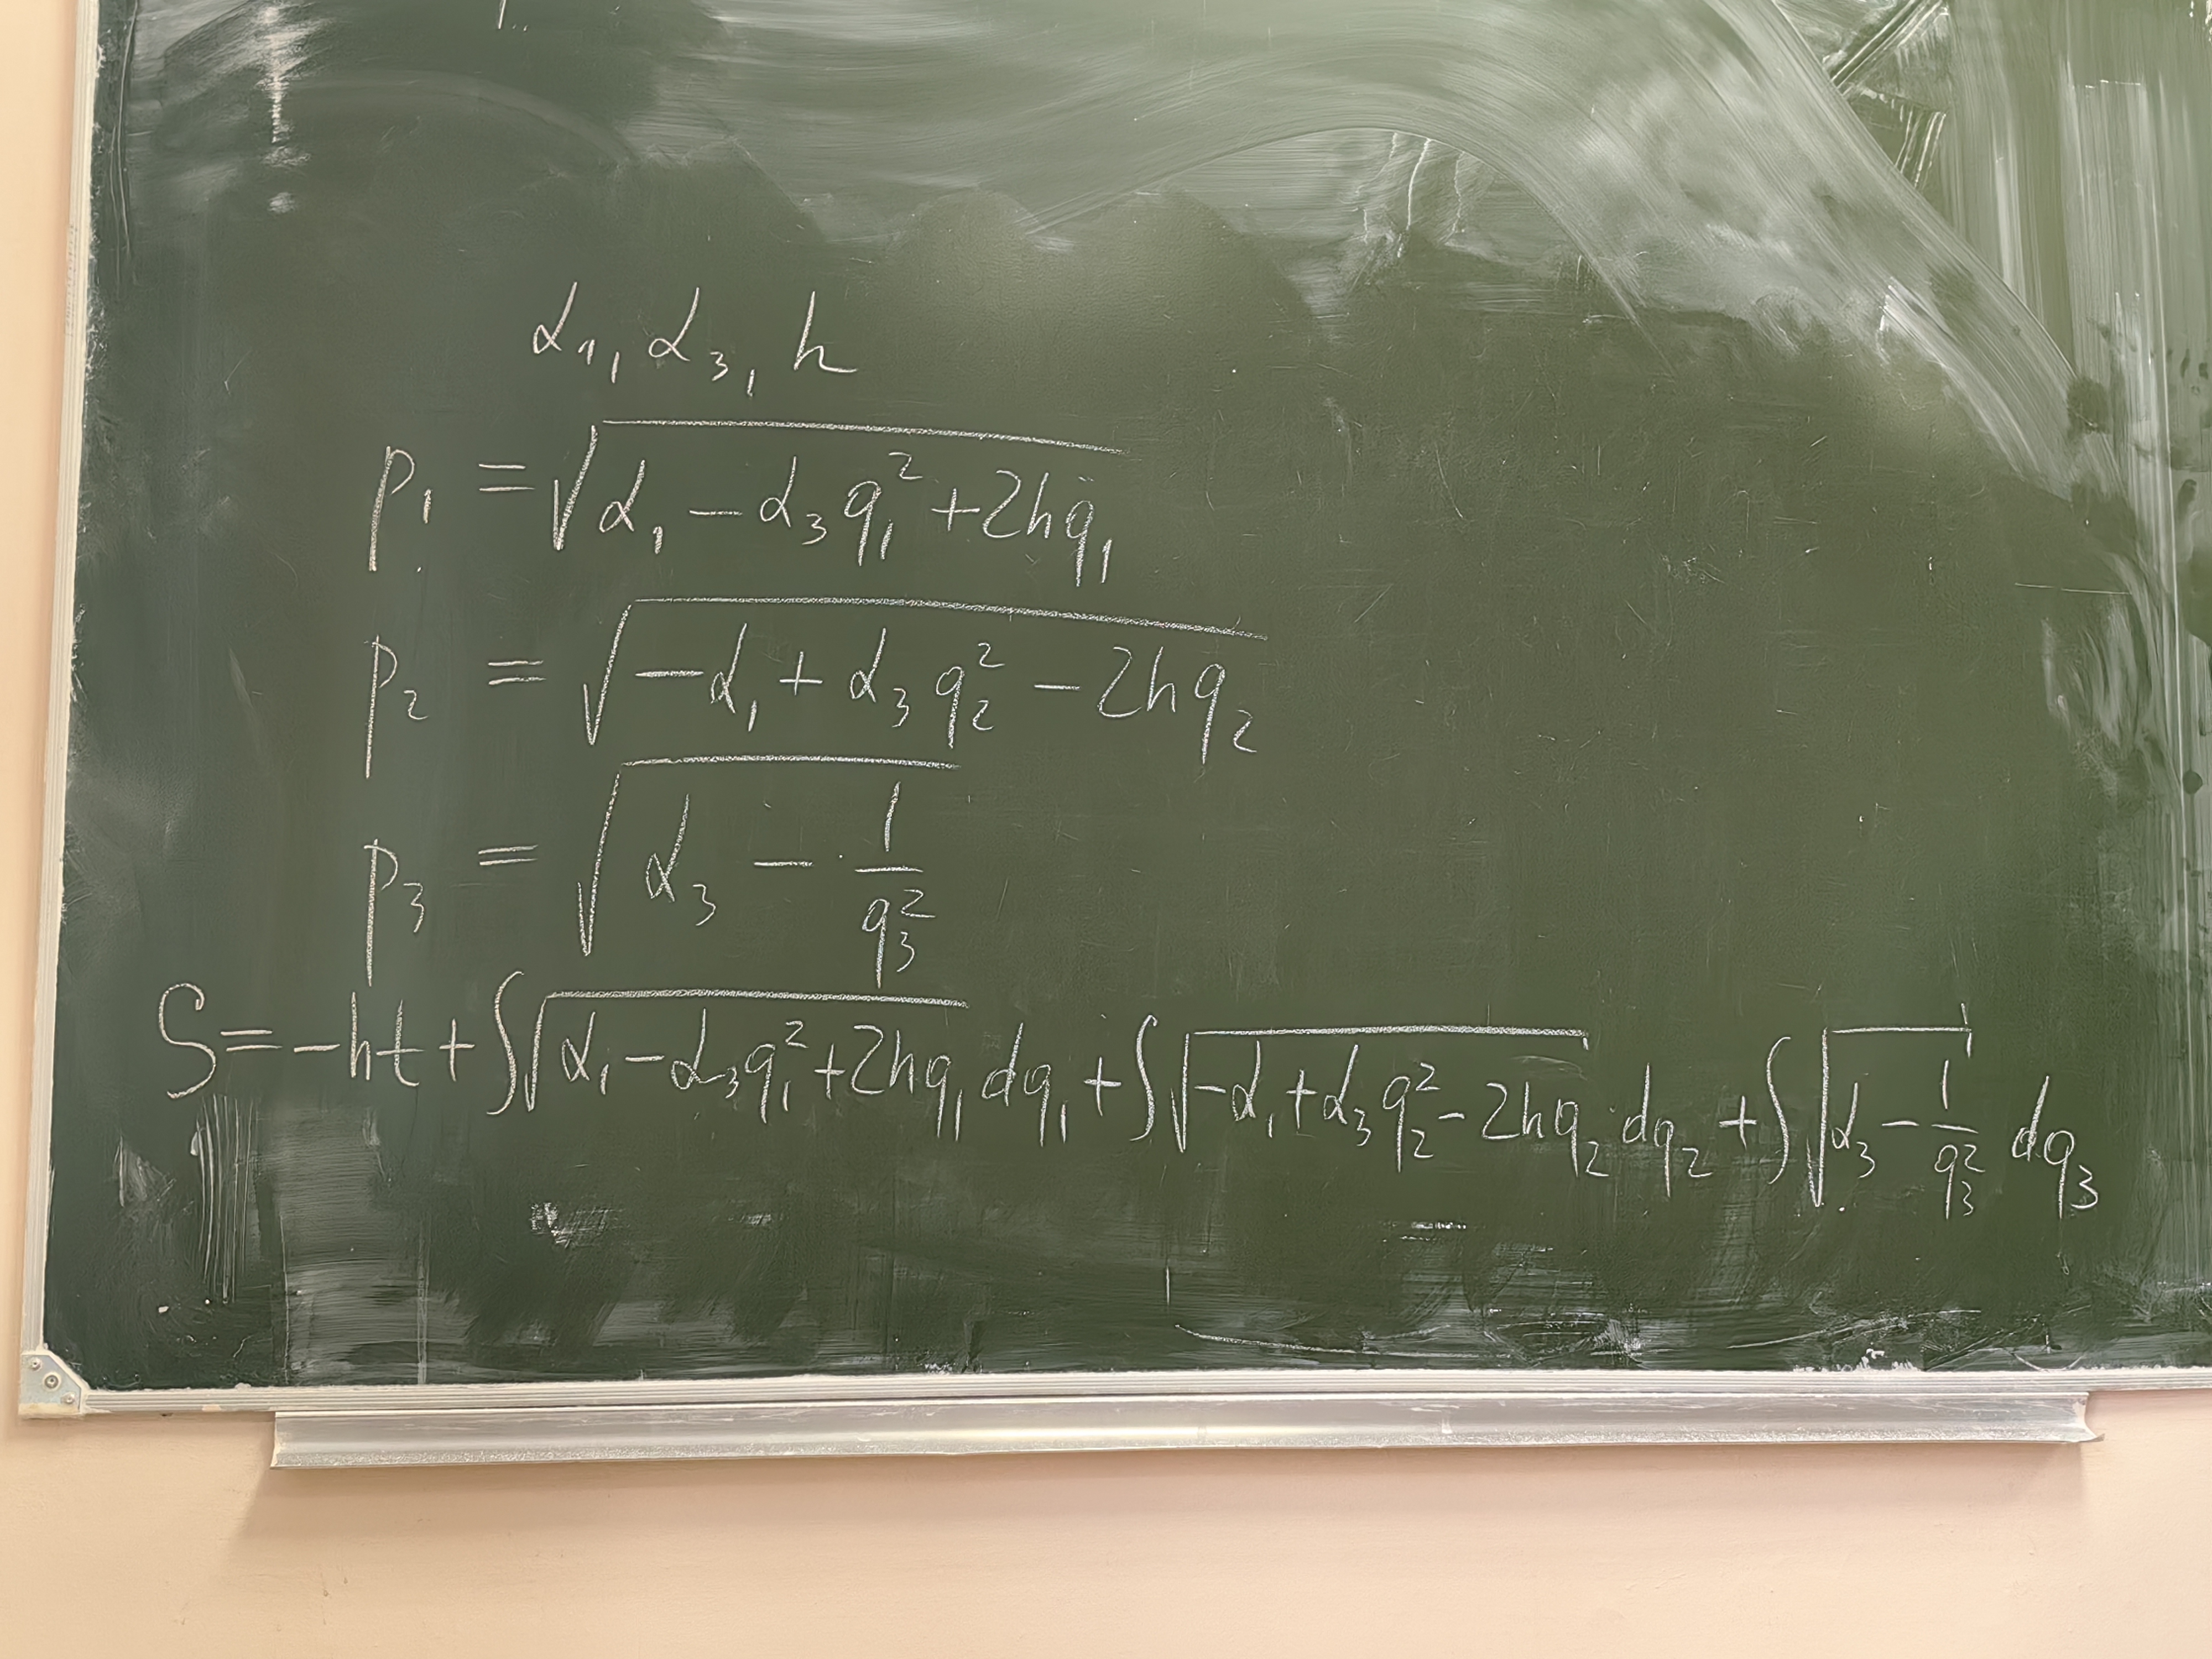 α₁, α₃, h
p₁ = √(α₁ − α₃q₁² + 2hq₁)
p₂ = √(−α₁ + α₃q₂² − 2hq₂)
p₃ = √(α₃ − 1/q₃²)
S = −ht + ∫√(α₁ − α₃q₁² + 2hq₁) dq₁ + ∫√(−α₁ + α₃q₂² − 2hq₂) dq₂ + ∫√(α₃ − 1/q₃²) dq₃